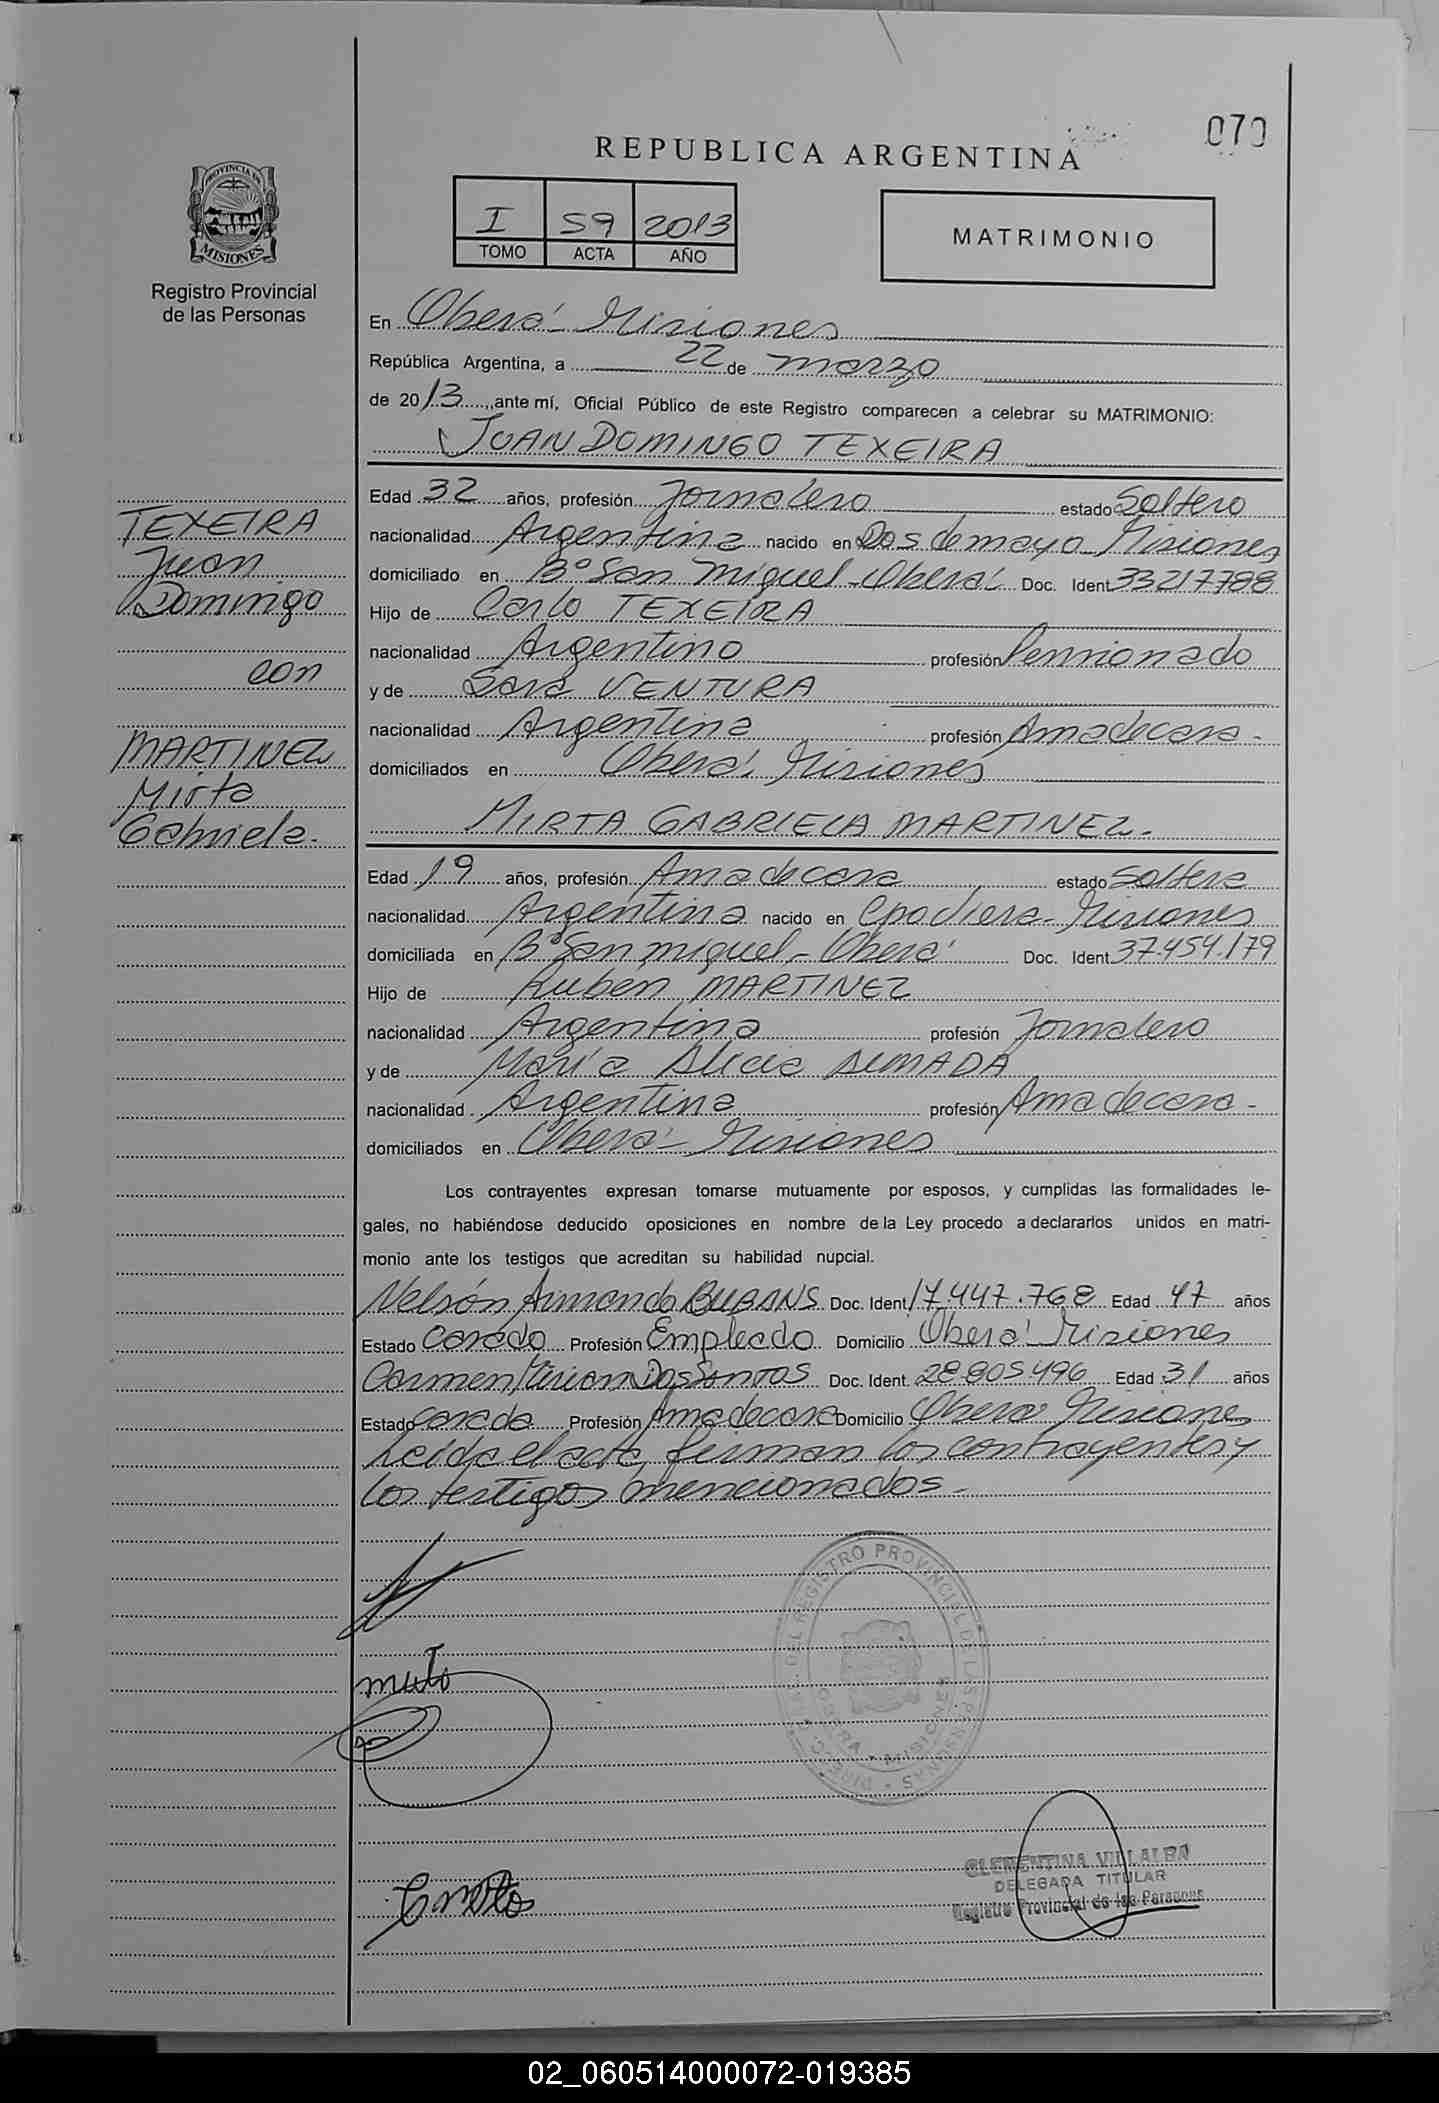 070
REPUBLICA ARGENTINA
PROVINCIA DE MISIONES
Registro Provincial
de las Personas
I 59 2013
TOMO ACTA AÑO
MATRIMONIO
En Oberá - Misiones
República Argentina, a 22 de marzo
de 2013, ante mí, Oficial Público de este Registro comparecen a celebrar su MATRIMONIO:
JUAN DOMINGO TEXEIRA
TEXEIRA
Juan
Domingo
con
MARTINEZ
Mirta
Gabriela.
Edad 32 años, profesión Jornalero estado Soltero
nacionalidad Argentina nacido en Dos de mayo Misiones
domiciliado en Bº San Miguel - Oberá Doc. Ident 33217788
Hijo de Carlo TEXEIRA
nacionalidad Argentino profesión Pensionado
y de Sara VENTURA
nacionalidad Argentina profesión Ama de casa -
domiciliados en Oberá, Misiones
MIRTA GABRIELA MARTINEZ.
Edad 19 años, profesión Ama de casa estado Soltera
nacionalidad Argentina nacido en Misiones
domiciliada en Bº San miguel - Oberá Doc. Ident 37.454.179
Hijo de Ruben MARTINEZ
nacionalidad Argentina profesión Jornalero
y de María Alicia ALMADA
nacionalidad Argentina profesión Ama de casa -
domiciliados en Oberá - Misiones
Los contrayentes expresan tomarse mutuamente por esposos, y cumplidas las formalidades le-
gales, no habiéndose deducido oposiciones en nombre de la Ley procedo a declararlos unidos en matri-
monio ante los testigos que acreditan su habilidad nupcial.
Nelsón Armando Doc. Ident 17.447.768 Edad 47 años
Estado Casado Profesión Empleado Domicilio Oberá Misiones
Carmen Miriam Dos Santos Doc. Ident. 28.805.496 Edad 31 años
Estado casada Profesión Ama de casa Domicilio Oberá Misiones
Leída el acta, firman los contrayentes y
los testigos mencionados -
DIRECC. GRAL. DEL REGISTRO PROVINCIAL DE LAS PERSONAS
OBERA - MISIONES
CLEMENTINA VILLALBA
DELEGADA TITULAR
Registro Provincial de las Personas
02_060514000072-019385